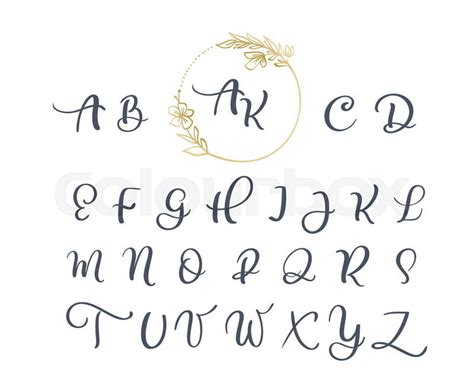 A B AK C D
E F G H I J K L
M N O P Q R S
T U V W X Y Z
colourbox